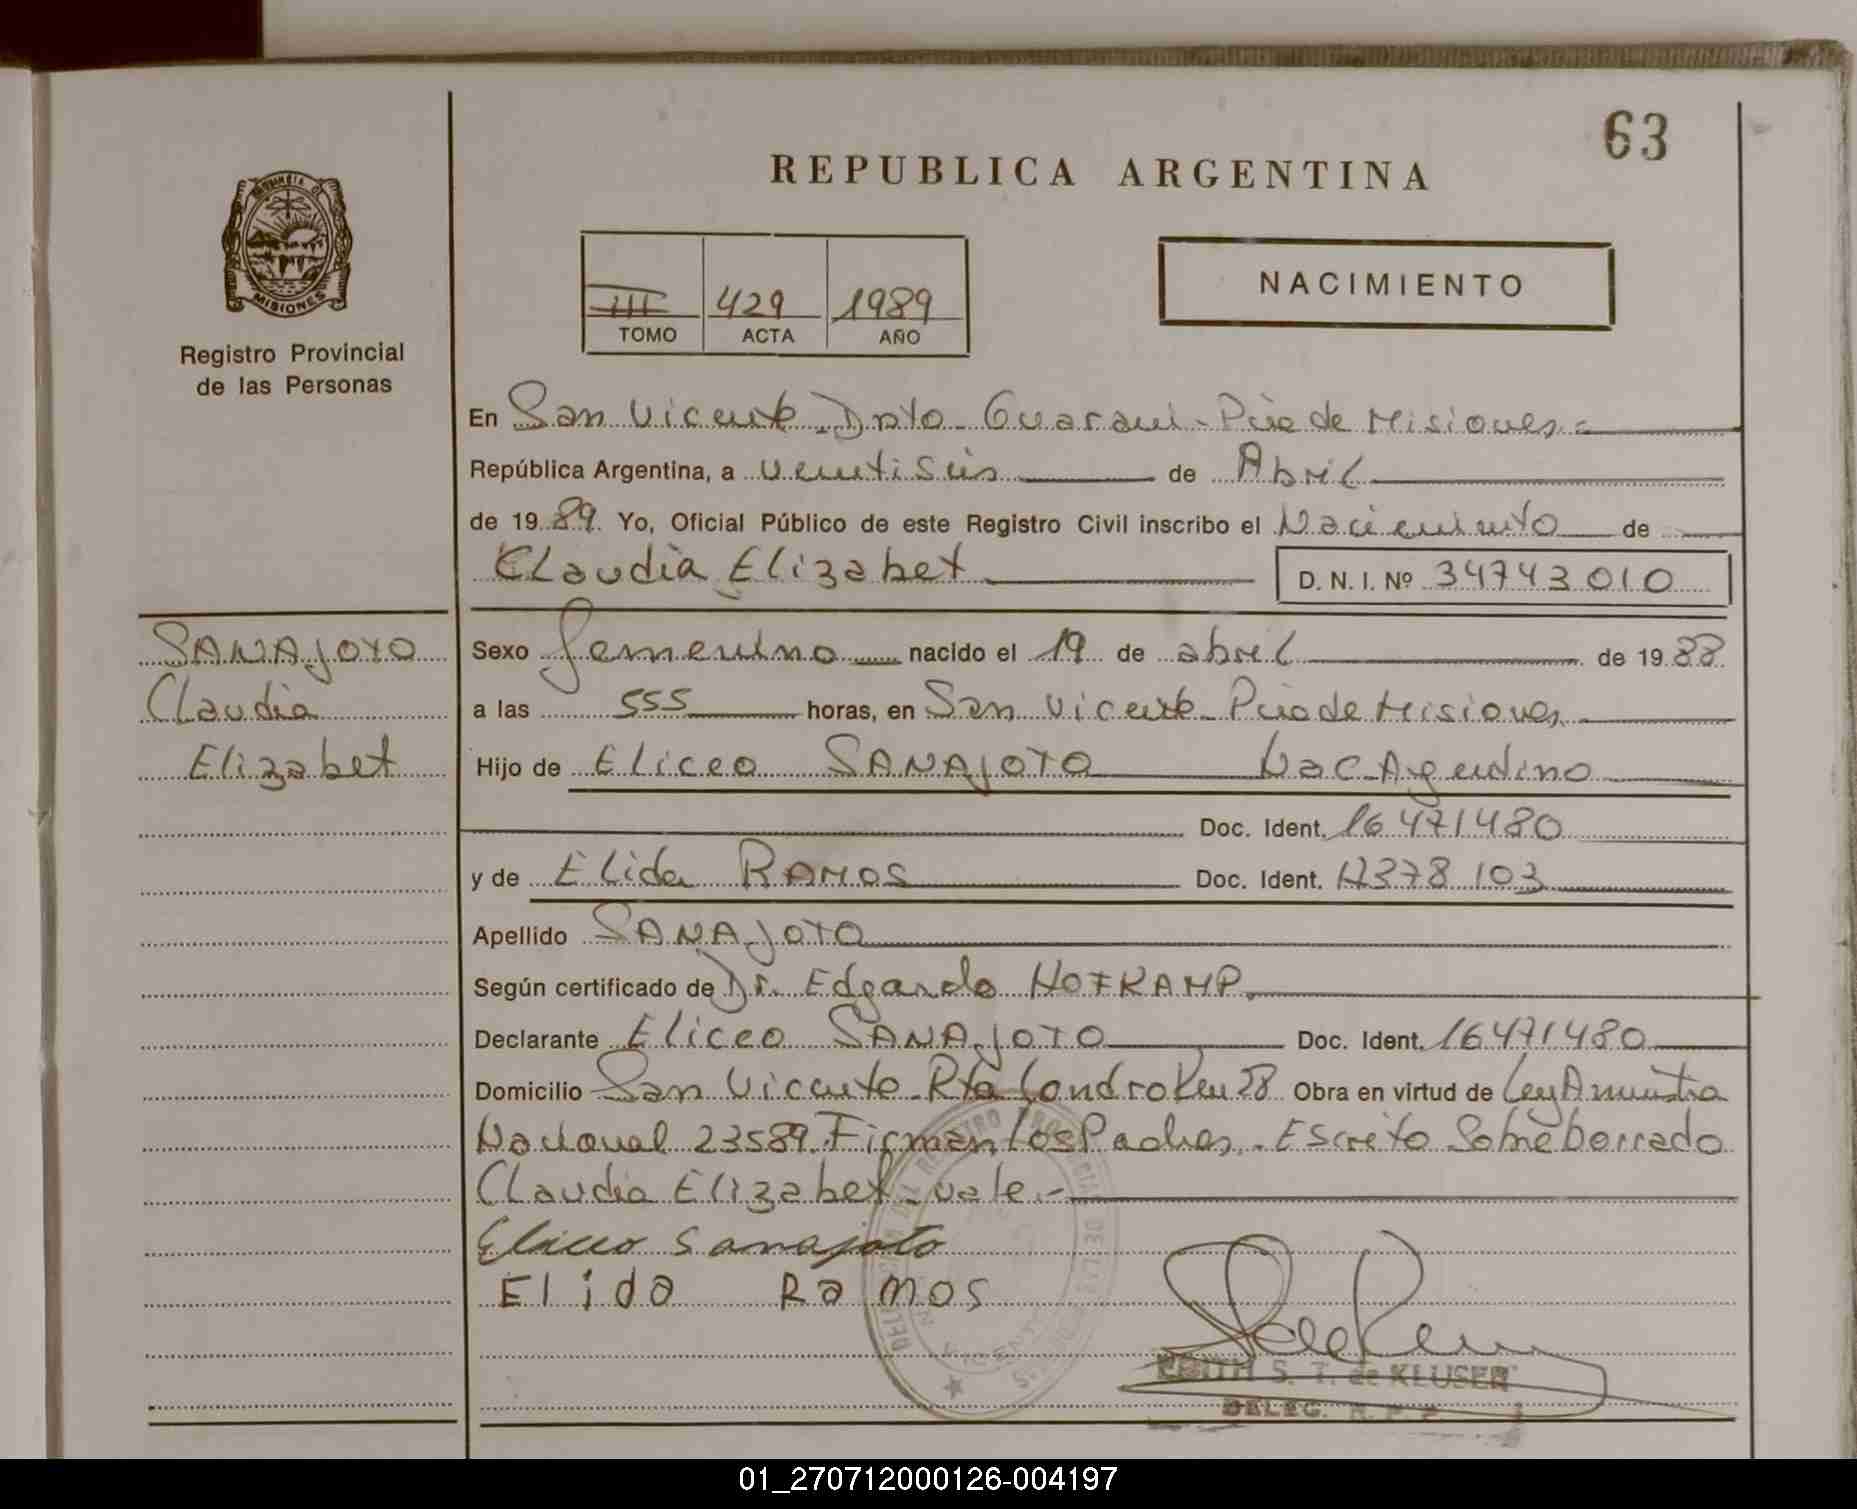 63
REPUBLICA ARGENTINA
PROVINCIA D
MISIONES
Registro Provincial
de las Personas
III 429 1989
TOMO ACTA AÑO
NACIMIENTO
En San Vicente Dpto. Guarani - Pcia de Misiones
República Argentina, a ventiseis de Abril
de 1989. Yo, Oficial Público de este Registro Civil inscribo el Nacimiento de
Claudia Elizabet
D. N. I. Nº 34743010
SANAJOTO
Claudia
Elizabet
Sexo femenino nacido el 19 de abril de 1988
a las 555 horas, en San Vicente Pcia de Misiones
Hijo de Eliceo SANAJOTO Nac Argentino
Doc. Ident. 16471480
y de Elida RAMOS Doc. Ident. 378 103
Apellido SANAJOTO
Según certificado de Dr. Edgardo HOFKAMP.
Declarante Eliceo SANAJOTO Doc. Ident. 16471480
Domicilio San Vicente Km 28 Obra en virtud de Ley Amnistia
Nacional 23589. Firman los Padres. Escrito Sobre borrado
Claudia Elizabet vale.-
Eliceo Sanajoto
Elida Ramos
EDITH S. T. de KLUSER
DELEG. R. P. P.
01_270712000126-004197